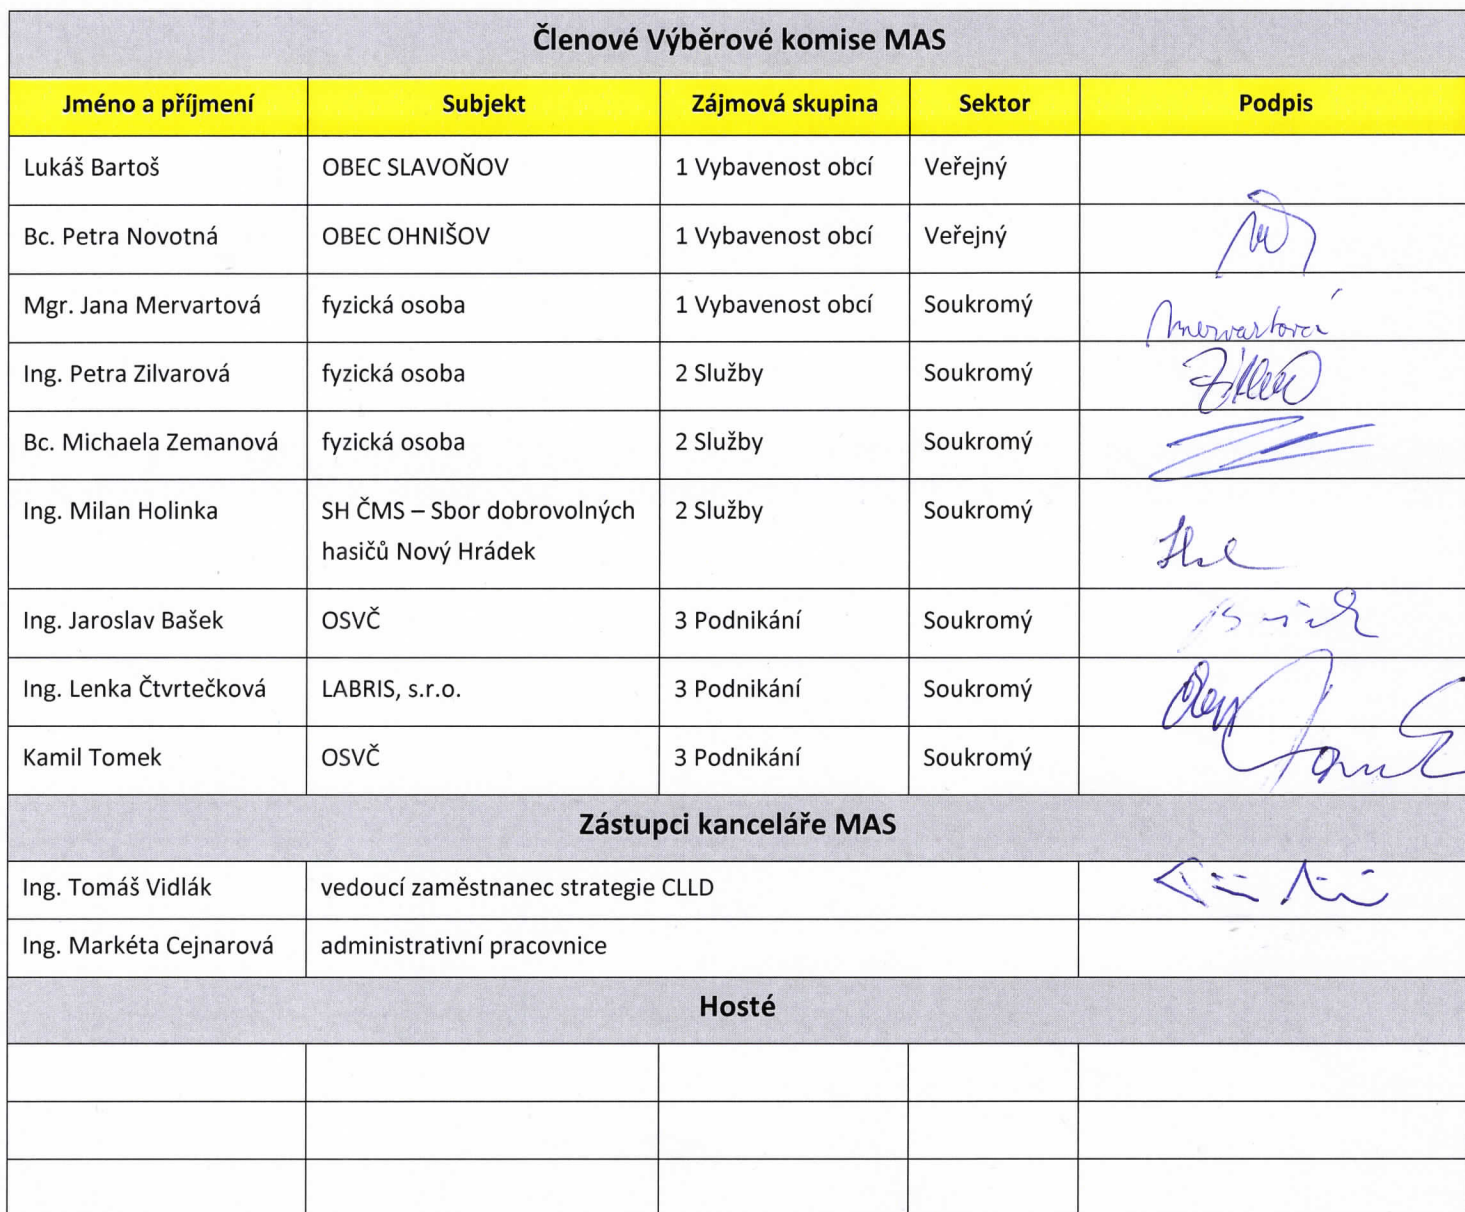 Členové Výběrové komise MAS
Jméno a příjmení Subjekt Zájmová skupina Sektor Podpis
Lukáš Bartoš OBEC SLAVOŇOV 1 Vybavenost obcí Veřejný
Bc. Petra Novotná OBEC OHNIŠOV 1 Vybavenost obcí Veřejný
Mgr. Jana Mervartová fyzická osoba 1 Vybavenost obcí Soukromý Mervartová
Ing. Petra Zilvarová fyzická osoba 2 Služby Soukromý
Bc. Michaela Zemanová fyzická osoba 2 Služby Soukromý
Ing. Milan Holinka SH ČMS – Sbor dobrovolných 2 Služby Soukromý
hasičů Nový Hrádek
Ing. Jaroslav Bašek OSVČ 3 Podnikání Soukromý
Ing. Lenka Čtvrtečková LABRIS, s.r.o. 3 Podnikání Soukromý
Kamil Tomek OSVČ 3 Podnikání Soukromý
Zástupci kanceláře MAS
Ing. Tomáš Vidlák vedoucí zaměstnanec strategie CLLD
Ing. Markéta Cejnarová administrativní pracovnice
Hosté